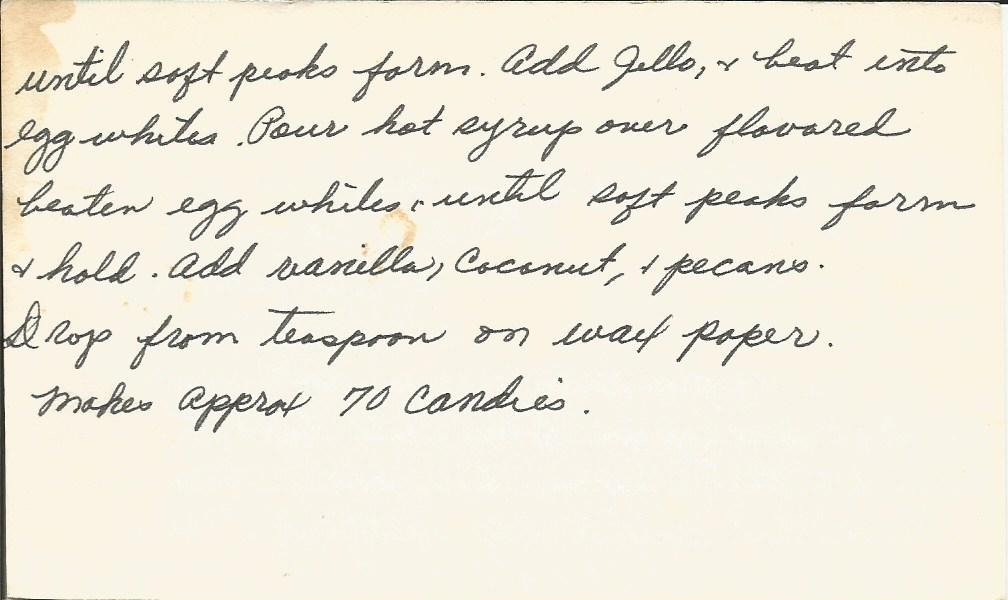 until soft peaks form. Add Jello, & beat into
egg whites. Pour hot syrup over flavored
beaten egg whites, until soft peaks form
& hold. Add vanilla, Coconut, & pecans.
Drop from teaspoon on wax paper.
Makes Approx 70 Candies.